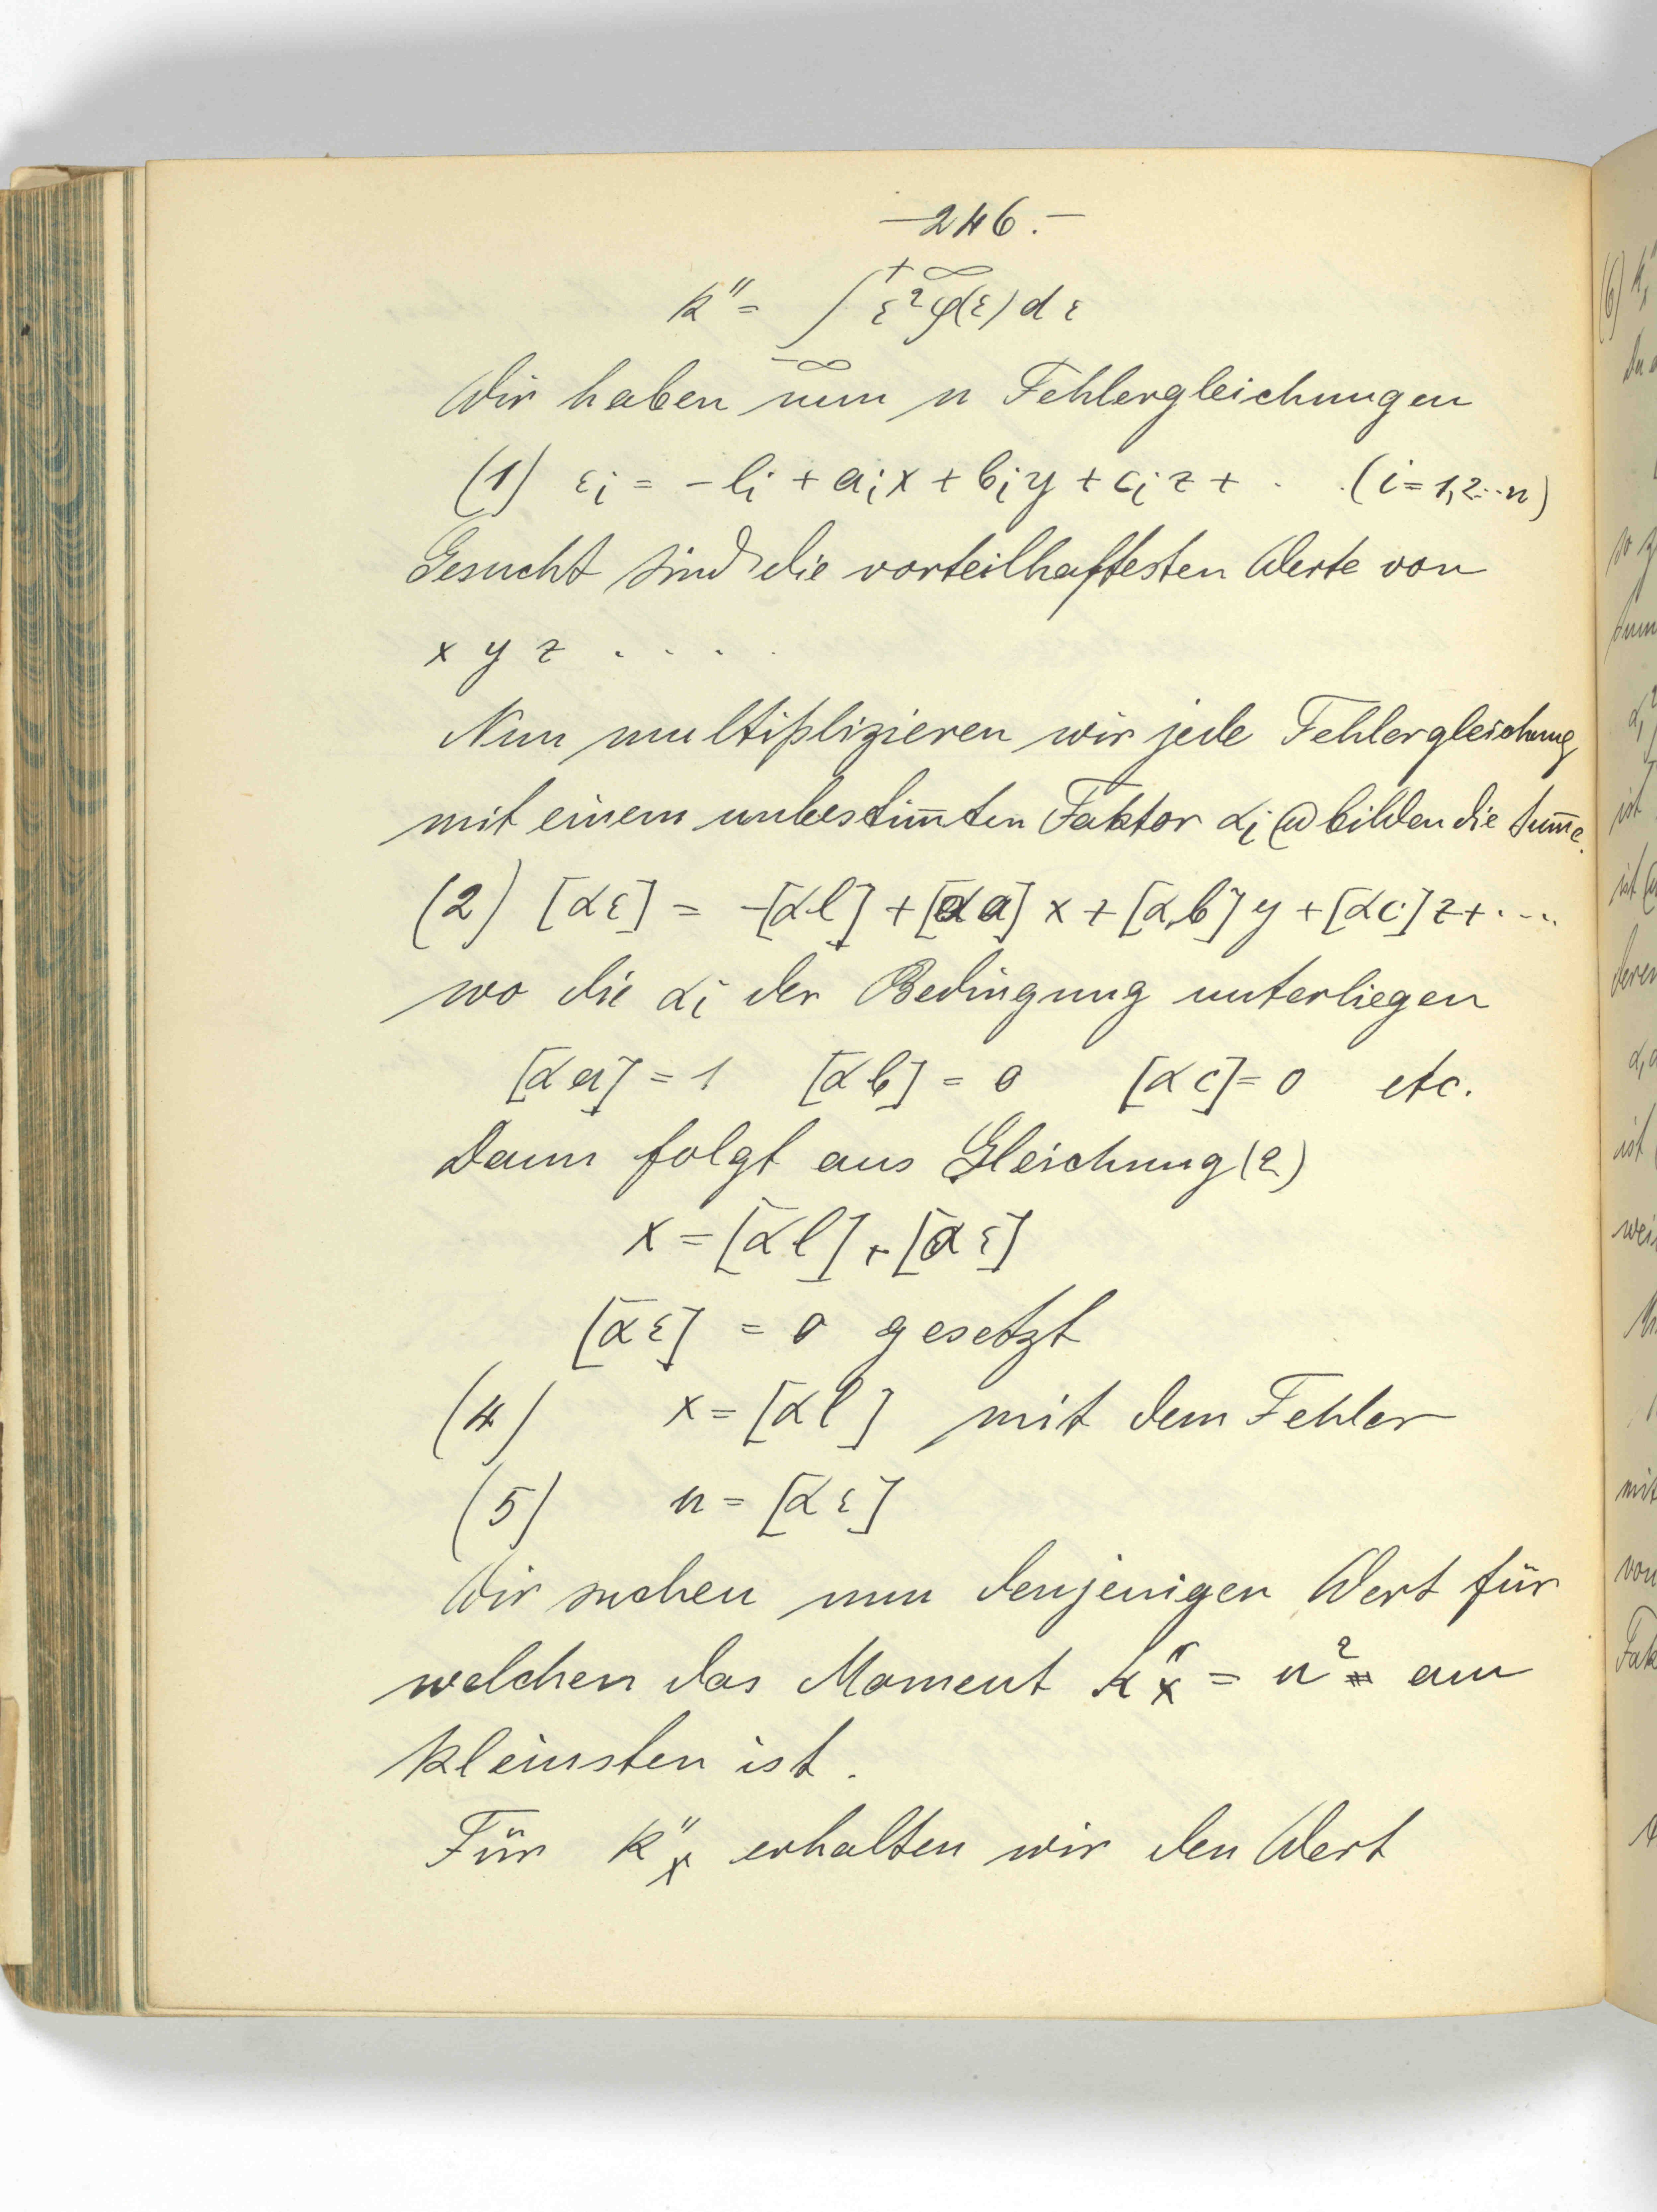 —246.—
k″ = ∫₋∞^+∞ ε²φ(ε)dε
Wir haben nun n Fehlergleichungen
(1) εi = −li + aix + biy + ciz + . . (i=1,2...n)
Gesucht sind die vorteilhaftesten Werte von
x y z . . . . .
Nun multiplizieren wir jede Fehlergleichung
mit einem unbestim̅ten Faktor αi (u) bilden die Sum̅e.
(2) [αε] = −[αl] + [αa] x + [αb] y + [αc] z + ....
wo die αi der Bedingung unterliegen
[αa] = 1 [αb] = 0 [αc] = 0 etc.
Dann folgt aus Gleichung (2)
x = [αl] + [αε]
[αε] = 0 gesetzt
(4) x = [αl] mit dem Fehler
(5) u = [αε]
Wir suchen nun denjenigen Wert für
welchen das Moment k″x = u² am
kleinsten ist.
Für k″x erhalten wir den Wert